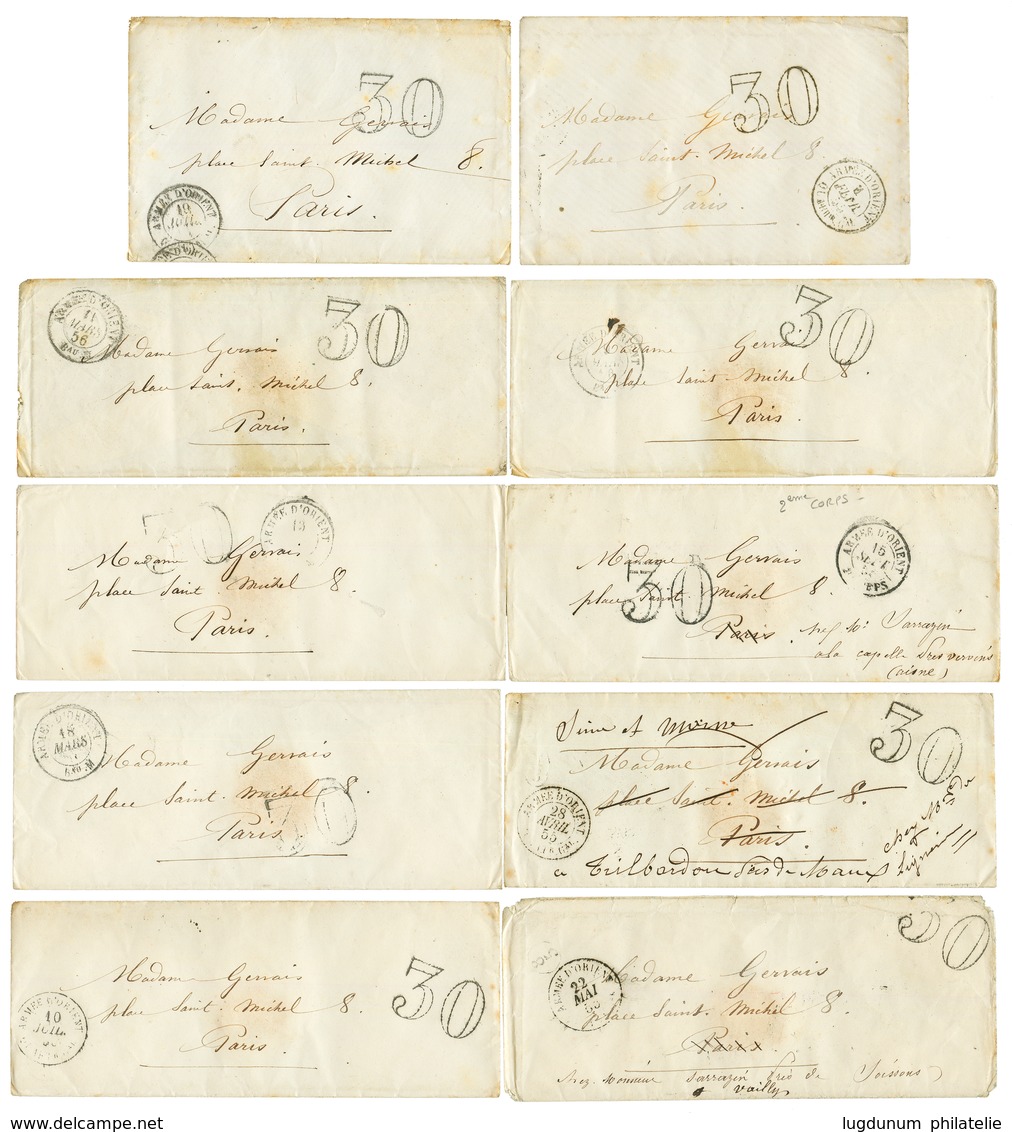 30
Madame Gervais
place Saint. Michel 8.
Paris.
ARMÉE D'ORIENT
10
JUIL.
30
Madame Gervais
place Saint. Michel 8.
Paris.
ARMÉE D'ORIENT
ARMÉE D'ORIENT
11
MARS
56
30
Madame Gervais
place Saint. Michel 8.
Paris.
30
ARMÉE D'ORIENT
Madame Gervais
place Saint. Michel 8.
Paris.
30
ARMÉE D'ORIENT
Madame Gervais
place Saint. Michel 8.
Paris.
2eme CORPS
ARMÉE D'ORIENT
15
SEPT
Madame Gervais
30
place Saint. Michel 8.
Paris. Sarrazin
a la capelle Près vervins
(aisne)
ARMÉE D'ORIENT
18
MARS
Madame Gervais
place Saint. Michel 8.
30
Paris.
Seine et Marne
30
Madame Gervais
place Saint. Michel 8.
ARMÉE D'ORIENT
28
AVRIL
55
Paris.
a Trilbardou Près de Meaux
chez
30
Madame Gervais
place Saint. Michel 8.
Paris.
ARMÉE D'ORIENT
10
JUIL.
30
ARMÉE D'ORIENT
22
MAI
Madame Gervais
place Saint. Michel 8.
Paris.
chez Monsieur Sarrazin Près de Soissons
a Vailly
delcampe.net
lugdunum philatelie